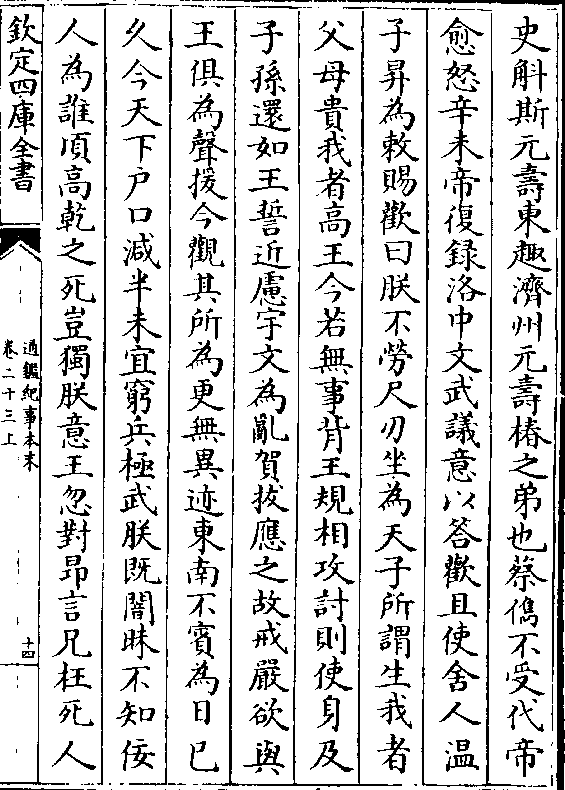 史斛斯元壽東趣濟州元壽椿之弟也蔡儁不受代帝
愈怒辛未帝復録洛中文武議意以答歡且使舍人温
子昇為敕賜歡曰朕不勞尺刃坐為天子所謂生我者
父母貴我者高王今若無事背王規相攻討則使身及
子孫還如王誓近慮宇文為亂賀拔應之故戒嚴欲與
王俱為聲援今觀其所為更無異迹東南不賓為日已
久今天下户口減半未宜窮兵極武朕既闇昧不知佞
人為誰頃高乾之死豈獨朕意王忽對昂言兄枉死人
欽定四庫全書
通鑑紀事本末
卷二十三上
十四